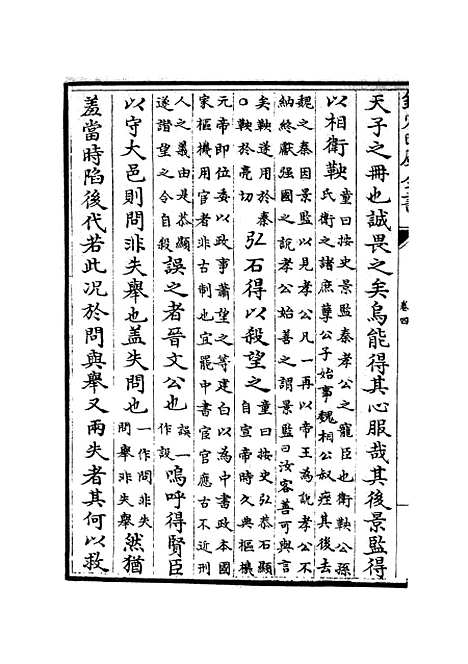 卷四
天子之冊也誠畏之矣烏能得其心服哉其後景監得
以相衛鞅童曰按史景監秦孝公之寵臣也衛鞅公孫
氏衛之諸庶孽公子始事魏相公叔痤其後去
魏之秦因景監以見孝公凡一再以帝王為說孝公不
納終獻强國之說孝公始善之謂景監曰汝客善可與言
矣鞅遂用於秦
○鞅於亮切弘石得以殺望之童曰按史弘恭石顯
自宣帝時久典樞機
元帝即位委以政事蕭望之等建白以為中書政本國
家樞機用宦者非古制也宜罷中書宦官應古不近刑
人之義由是恭顯
遂譖望之令自殺誤之者晉文公也誤一
作設嗚呼得賢臣
以守大邑則問非失舉也盖失問也一作問非失
問舉非失舉然猶
羞當時陷後代若此况於問與舉又兩失者其何以救